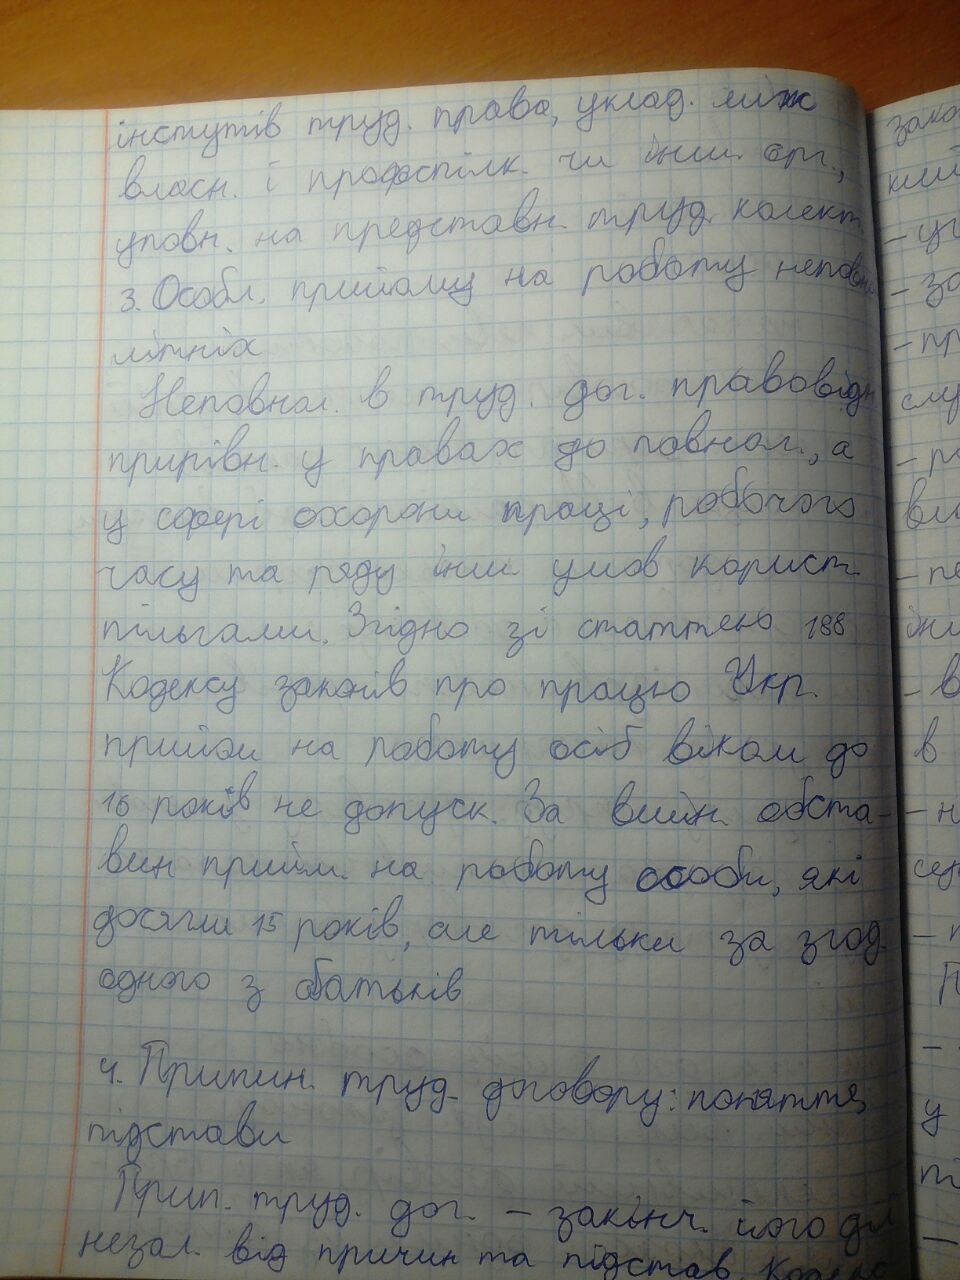 інстутів труд. права, уклад. між
власн. і профспілк. чи інш. орг.,
уповн. на представн. труд. колект.
3. Особл. прийому на роботу неповно
літніх
Неповнол. в труд. дог. правовідн
прирівн. у правах до повнол., а
у сфері охорони праці, робочого
часу та ряду інш. умов корист.
пільгами. Згідно зі статтею 188
Кодексу законів про працю Укр.
прийом на роботу осіб віком до
16 років не допуск. За вийн. обста-
вин прийм. на роботу особи, які
досягли 15 років, але тільки за згод.
одного з батьків
4. Припин. труд. договору: поняття,
підстави
Прип. труд. дог. – закінч. його дії
незал. від причин та підстав. Кодекс